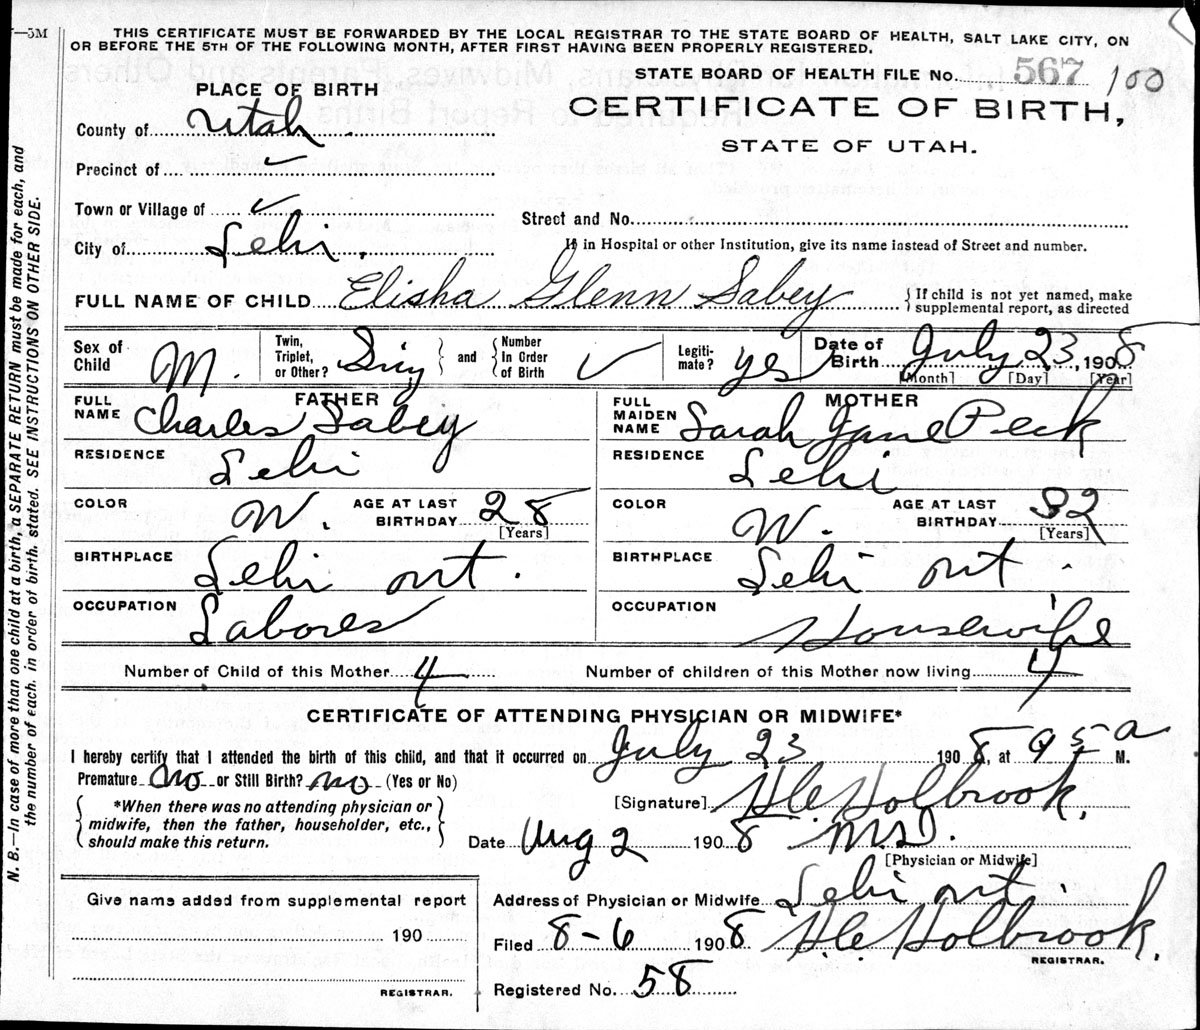 —5M
THIS CERTIFICATE MUST BE FORWARDED BY THE LOCAL REGISTRAR TO THE STATE BOARD OF HEALTH, SALT LAKE CITY, ON
OR BEFORE THE 5TH OF THE FOLLOWING MONTH, AFTER FIRST HAVING BEEN PROPERLY REGISTERED.
STATE BOARD OF HEALTH FILE No. 567 100
PLACE OF BIRTH
CERTIFICATE OF BIRTH,
STATE OF UTAH.
County of Utah
Precinct of ✓
Town or Village of ✓
Street and No.
City of Lehi.
If in Hospital or other Institution, give its name instead of Street and number.
FULL NAME OF CHILD Elisha Glenn Sabey
{ If child is not yet named, make
supplemental report, as directed
Sex of Child M.
Twin, Triplet, or Other? Sing } and { Number In Order of Birth ✓
Legiti-mate? yes
Date of Birth July 23, 1908
[Month] [Day] [Year]
FATHER
FULL NAME Charles Sabey
RESIDENCE Lehi
COLOR W. AGE AT LAST BIRTHDAY 28
[Years]
BIRTHPLACE Lehi ut.
OCCUPATION Laborer
MOTHER
FULL MAIDEN NAME Sarah Jane Peck
RESIDENCE Lehi
COLOR W. AGE AT LAST BIRTHDAY 32
[Years]
BIRTHPLACE Lehi ut.
OCCUPATION Housewife
Number of Child of this Mother 4
Number of children of this Mother now living 4
CERTIFICATE OF ATTENDING PHYSICIAN OR MIDWIFE*
I hereby certify that I attended the birth of this child, and that it occurred on July 23 1908, at 9 5 a M.
Premature no or Still Birth? no (Yes or No)
{ *When there was no attending physician or
midwife, then the father, householder, etc.,
should make this return. }
[Signature] Holbrook,
Date Aug 2 1908 M.D.
[Physician or Midwife]
Address of Physician or Midwife Lehi ut.
Filed 8-6 1908 Holbrook,
REGISTRAR.
Registered No. 58
Give name added from supplemental report
190
REGISTRAR.
N. B.—In case of more than one child at a birth, a SEPARATE RETURN must be made for each, and
the number of each, in order of birth, stated. SEE INSTRUCTIONS ON OTHER SIDE.